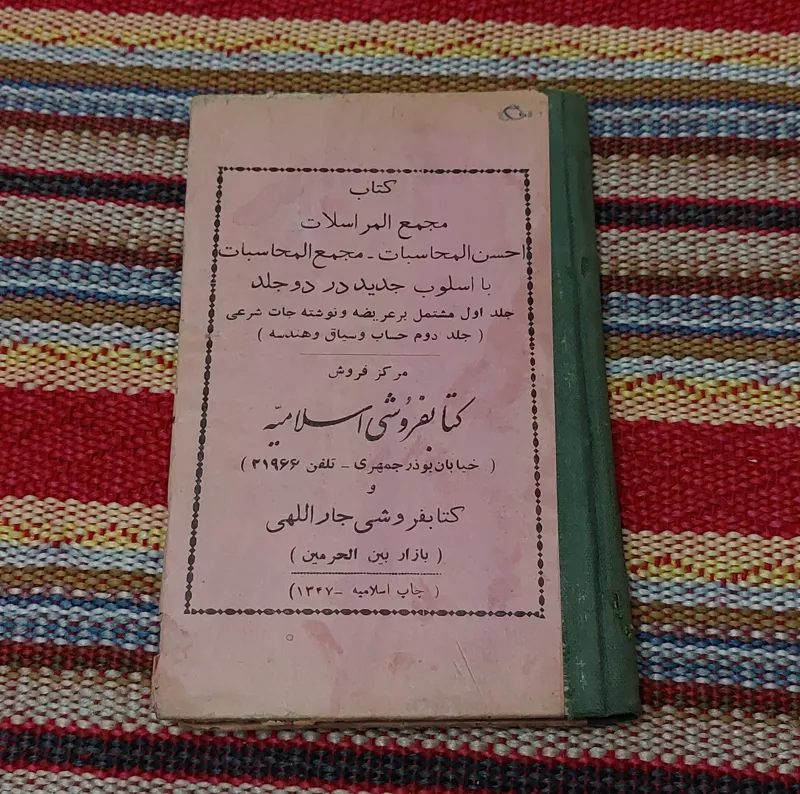 کتاب
مجمع المراسلات
احسن المحاسبات - مجمع المحاسبات
با اسلوب جدید در دو جلد
جلد اول مشتمل بر عریضه و نوشته جات شرعی
( جلد دوم حساب و سیاق و هندسه )
مرکز فروش
کتابفروُشی اسلامیّه
( خیابان بوذرجمهری - تلفن ۲۱۹۶۶ )
و
کتابفروشی جاراللهی
( بازار بین الحرمین )
( چاپ اسلامیه - ۱۳۴۷)